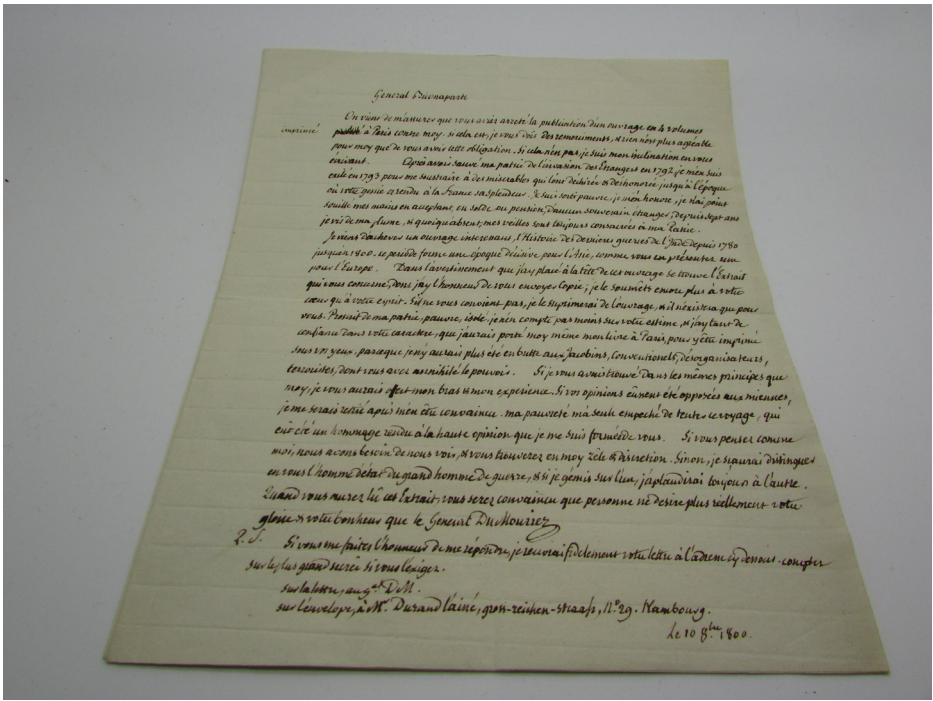 General Buonaparte
On vient de m'assurer que vous aviez arreté la publication d'un ouvrage en 4 volumes
imprimé à Paris contre moy. si cela est, je vous dois des remerciments, & rien n'est plus agréable
pour moy que de vous avoir cette obligation. Si cela n'est pas, je suis mon inclination en vous
écrivant. Après avoir sauvé ma patrie de l'invasion des Etrangers en 1792, je m'en suis
exilé en 1793 pour me soustraire à des misérables qui l'ont déchirée & deshonorée jusqu'à l'époque
où votre genie a rendu à la France sa splendeur. J'en suis sorti pauvre, je m'en honore, je n'ai point
souillé mes mains en acceptant, ou solde ou pension, d'aucun souverain étranger, depuis sept ans
je vis de ma plume, & quoique absent, mes veilles sont toujours consacrées à ma Patrie.
Je viens d'achever un ouvrage interessant, l'Histoire des dernieres guerres de l'Inde depuis 1780
jusqu'en 1800. ce periode forme une époque décisive pour l'Asie, comme vous en présentez une
pour l'Europe. Dans l'avertissement que j'ay placé à la tête de cet ouvrage se trouve l'Extrait
qui vous concerne, dont j'ay l'honneur de vous envoyer Copie; je le soumèts encore plus à votre
cœur qu'à votre esprit. S'il ne vous convient pas, je le suprimerai de l'ouvrage, & il n'existera que pour
vous. Proscrit de ma patrie, pauvre, isolé, je n'en compte pas moins sur votre estime, & j'ay tant de
confiance dans votre caractere, que j'aurais porté moy même mon livre à Paris, pour y être imprimé
sous vos yeux, parceque je n'y aurais plus été en butte aux Jacobins, Conventionels, désorganisateurs,
terroristes, dont vous avez annihilé le pouvoir. Si je vous avais trouvé dans les mêmes principes que
moy, je vous aurais offert mon bras & mon experience. Si vos opinions eussent été opposées aux miennes,
je me serais retiré après m'en être convaincu. ma pauvreté m'a seule empeché de tenter ce voyage, qui
eut été un hommage rendu à la haute opinion que je me suis formée de vous. Si vous pensez comme
moi, nous avons besoin de nous voir, & vous trouverez en moy zèle & discretion. Sinon, je sçaurai distinguer
en vous l'homme d'état du grand homme de guerre, & si je gémis sur l'un, j'aplaudirai toujours à l'autre.
Quand vous aurez lû cet Extrait, vous serez convaincu que personne ne desire plus réellement votre
gloire & votre bonheur que le General DuMouriez
P. S. Si vous me faites l'honneur de me répondre, je recevrai fidelement votre lettre à l'adresse cy dessous. comptez
sur le plus grand secret si vous l'exigez.
sur la lettre, au gal D M.
sur l'envelope, à Mr Durand l'ainé, gross-reichen-strass, No 29. Hambourg.
Le 10 8bre 1800.